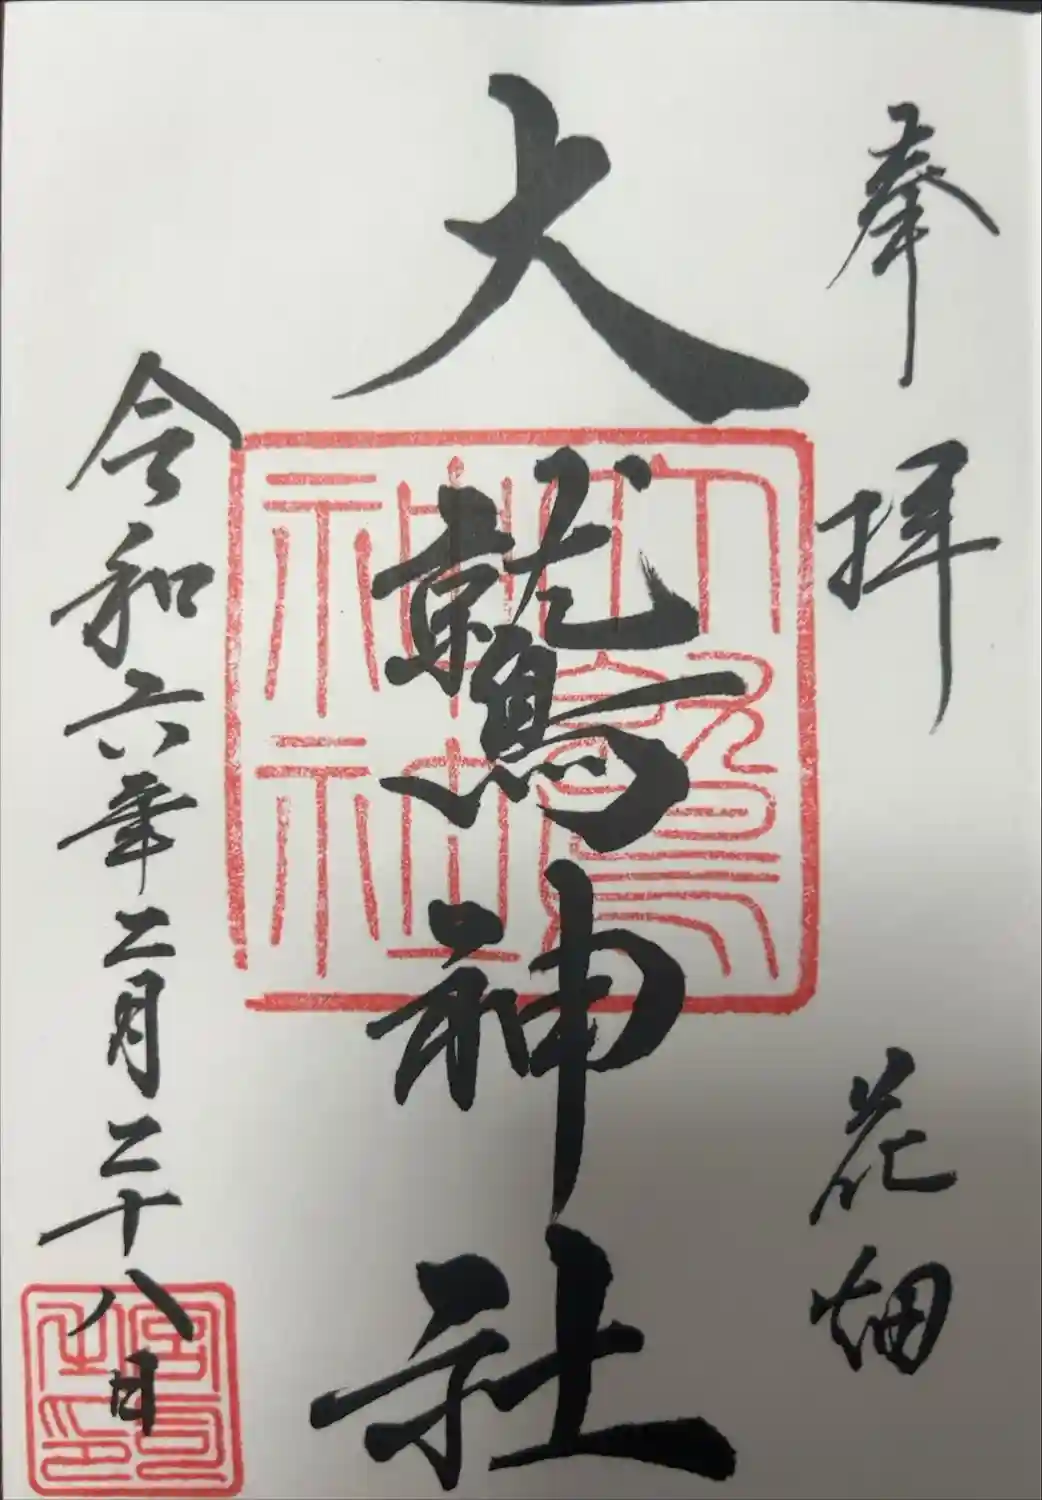 奉拝 花畑
大鷲神社
令和六年二月二十八日
大鷲神社
宮司之印